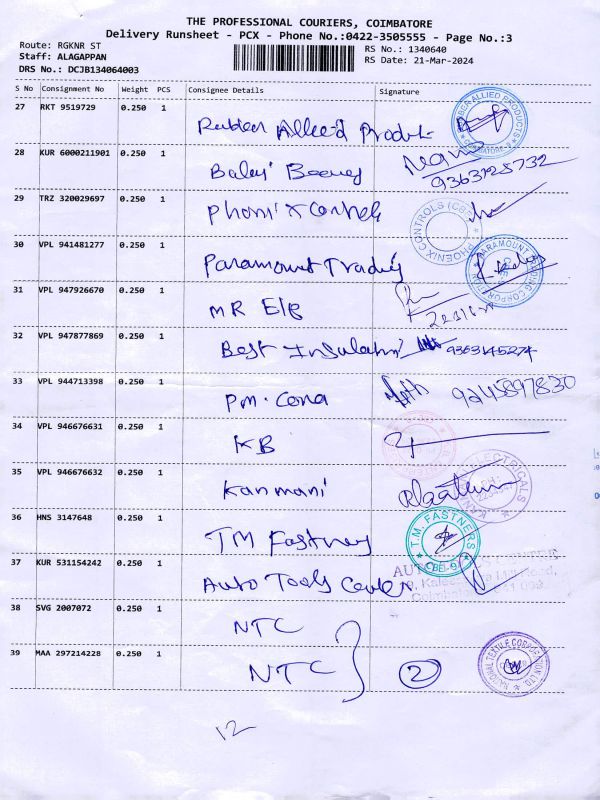 THE PROFESSIONAL COURIERS, COIMBATORE
Delivery Runsheet - PCX - Phone No.:0422-3505555 - Page No.:3
Route: RGKNR ST
RS No.: 1340640
Staff: ALAGAPPAN
RS Date: 21-Mar-2024
DRS No.: DCJB134064003
S No Consignment No Weight PCS Consignee Details Signature
27 RKT 9519729 0.250 1
Rubber Allied Produt
28 KUR 6000211901 0.250 1
Balaji
9363128732
29 TRZ 320029697 0.250 1
PHOENIX CONTROLS (CBE)
30 VPL 941481277 0.250 1
Paramount Trading
PARAMOUNT TRADING CORPORATION
31 VPL 947926670 0.250 1
MR E/B
32 VPL 947877869 0.250 1
Best Insulation 9363145274
33 VPL 944713398 0.250 1
PM. Cona 9245897830
34 VPL 946676631 0.250 1
KB
35 VPL 946676632 0.250 1
Kanmani
ELECTRICALS
36 HNS 3147648 0.250 1
TM Fastners
T.M. FASTNERS
CBE-9
37 KUR 531154242 0.250 1
Auto Tools Center
38 SVG 2007072 0.250 1
NTC
39 MAA 297214228 0.250 1
NTC 2
NATIONAL TEXTILE CORPORATION LTD.
12